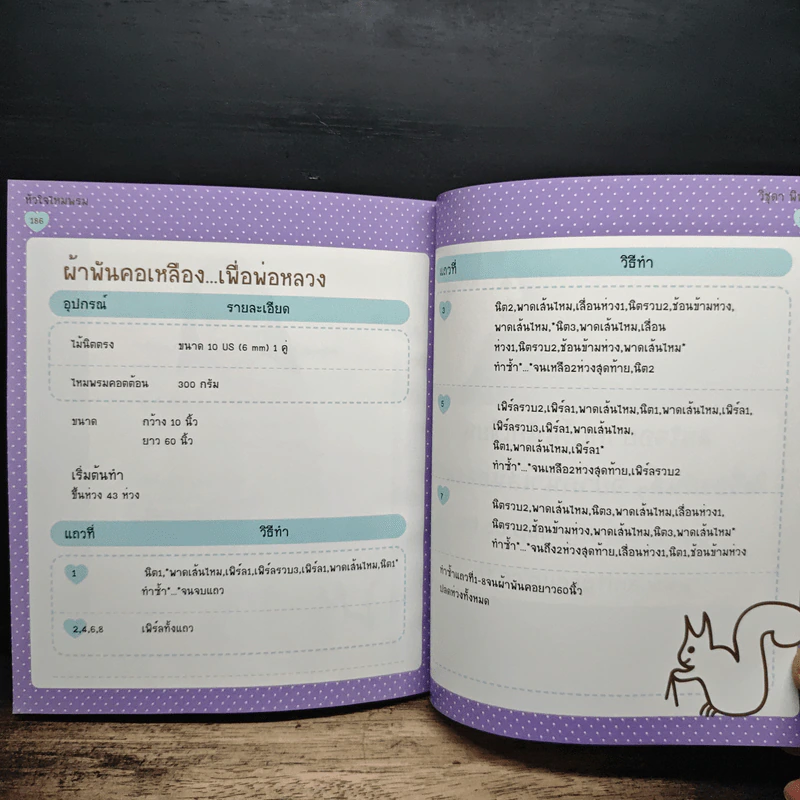 หัวใจไหมพรม
186
ผ้าพันคอเหลือง...เพื่อพ่อหลวง
อุปกรณ์ รายละเอียด
ไม้นิตตรง ขนาด 10 US (6 mm) 1 คู่
ไหมพรมคอตต้อน 300 กรัม
ขนาด กว้าง 10 นิ้ว
ยาว 60 นิ้ว
เริ่มต้นทำ
ขึ้นห่วง 43 ห่วง
แถวที่ วิธีทำ
1 นิต1,*พาดเส้นไหม,เพิร์ล1,เพิร์ลรวบ3,เพิร์ล1,พาดเส้นไหม,นิต1*
ทำซ้ำ*...*จนจบแถว
2,4,6,8 เพิร์ลทั้งแถว
วิชุดา
แถวที่ วิธีทำ
3 นิต2,พาดเส้นไหม,เลื่อนห่วง1,นิตรวบ2,ช้อนข้ามห่วง,
พาดเส้นไหม,*นิต3,พาดเส้นไหม,เลื่อน
ห่วง1,นิตรวบ2,ช้อนข้ามห่วง,พาดเส้นไหม*
ทำซ้ำ*...*จนเหลือ2ห่วงสุดท้าย,นิต2
5 เพิร์ลรวบ2,เพิร์ล1,พาดเส้นไหม,นิต1,พาดเส้นไหม,เพิร์ล1,
เพิร์ลรวบ3,เพิร์ล1,พาดเส้นไหม,
นิต1,พาดเส้นไหม,เพิร์ล1*
ทำซ้ำ*...*จนเหลือ2ห่วงสุดท้าย,เพิร์ลรวบ2
7 นิตรวบ2,พาดเส้นไหม,นิต3,พาดเส้นไหม,เลื่อนห่วง1,
นิตรวบ2,ช้อนข้ามห่วง,พาดเส้นไหม,นิต3,พาดเส้นไหม*
ทำซ้ำ*...*จนถึง2ห่วงสุดท้าย,เลื่อนห่วง1,นิต1,ช้อนข้ามห่วง
ทำซ้ำแถวที่1-8จนผ้าพันคอยาว60นิ้ว
ปลดห่วงทั้งหมด